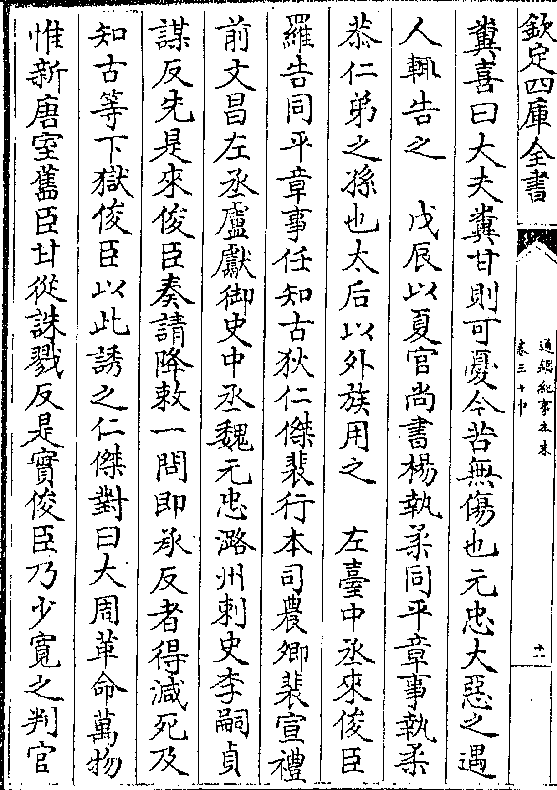 欽定四庫全書
通鑑紀事本末
卷三十中
十一
糞喜曰大夫糞甘則可憂今苦無傷也元忠大惡之遇
人輒告之 戊辰以夏官尚書楊執柔同平章事執柔
恭仁弟之孫也太后以外族用之 左臺中丞來俊臣
羅告同平章事任知古狄仁傑裴行本司農卿裴宣禮
前文昌左丞盧獻御史中丞魏元忠潞州刺史李嗣貞
謀反先是來俊臣奏請降敕一問即承反者得減死及
知古等下獄俊臣以此誘之仁傑對曰大周革命萬物
惟新唐室舊臣甘從誅戮反是實俊臣乃少寛之判官